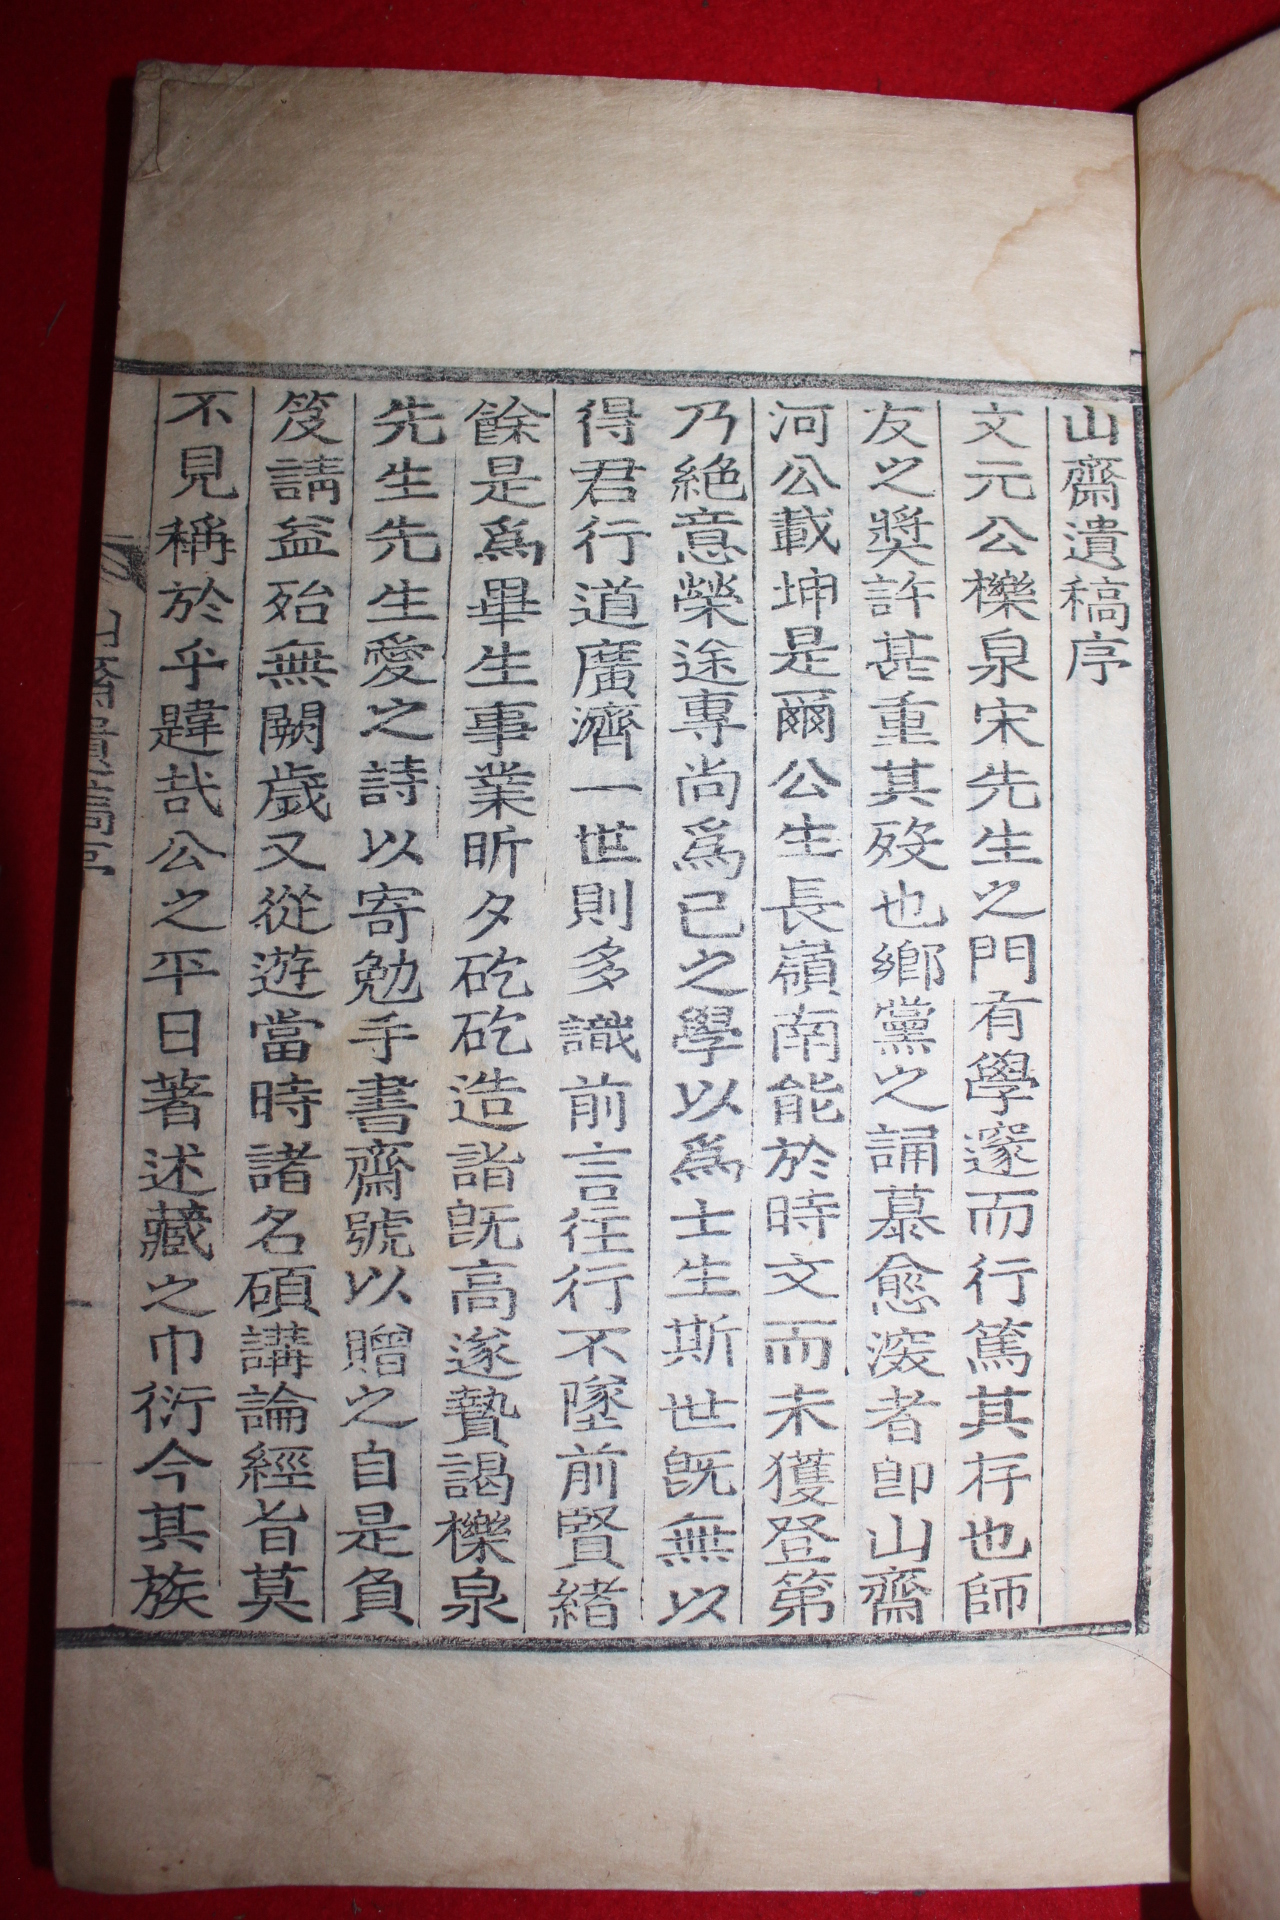 山齋遺稿序
文元公櫟泉宋先生之門有學邃而行篤其存也師
友之奬許甚重其歿也鄉黨之誦慕愈深者卽山齋
河公載坤是爾公生長嶺南能於時文而未獲登第
乃絶意榮途專尚爲己之學以爲士生斯世旣無以
得君行道廣濟一世則多識前言往行不墜前賢緖
餘是爲畢生事業昕夕矻矻造詣旣高遂贄謁櫟泉
先生先生愛之詩以寄勉手書齋號以贈之自是負
笈請益殆無闕歲又從遊當時諸名碩講論經旨莫
不見稱於乎韙哉公之平日著述藏之巾衍今其族
山齋遺稿序